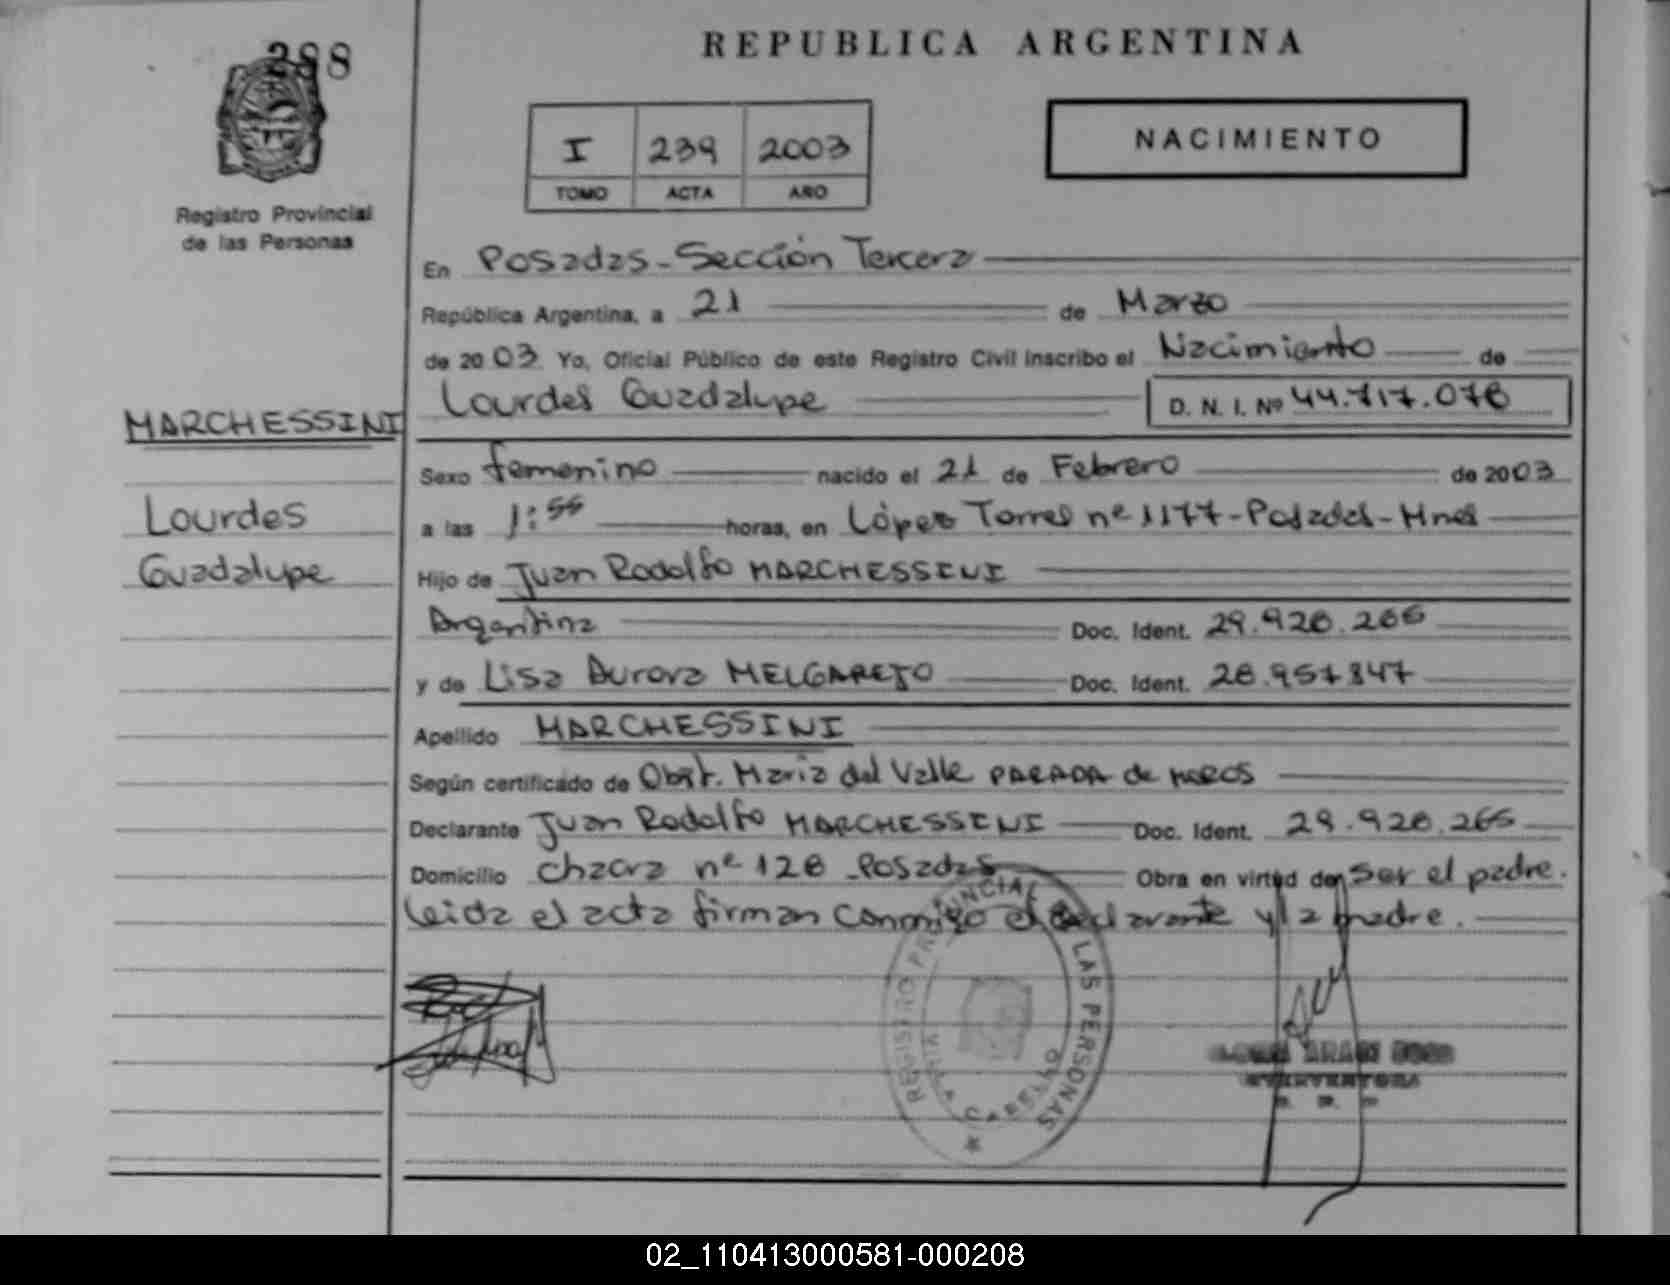 288
REPUBLICA ARGENTINA
I 239 2003
TOMO ACTA AÑO
NACIMIENTO
Registro Provincial
de las Personas
En Posadas-Sección Tercera
República Argentina, a 21 de Marzo
de 2003 Yo, Oficial Público de este Registro Civil inscribo el Nacimiento de
Lourdes Guadalupe D. N. I. Nº 44.717.078
MARCHESSINI
Lourdes
Guadalupe
Sexo femenino nacido el 21 de Febrero de 2003
a las 1:55 horas, en López Torres nº 1177-Posadas-Mnes
Hijo de Juan Rodolfo MARCHESSINI
Argentina Doc. Ident. 29.928.265
y de Lisa Aurora MELGAREJO Doc. Ident. 28.957.847
Apellido MARCHESSINI
Según certificado de Obst. Maria del Valle PARADA de MARCOS
Declarante Juan Rodolfo MARCHESSINI Doc. Ident. 29.928.265
Domicilio chacra nº 128 -Posadas Obra en virtud de ser el padre.
leida el acta firman conmigo el declarante y la madre.
REGISTRO PROVINCIAL LAS PERSONAS
VILLA CABELLO
02_110413000581-000208